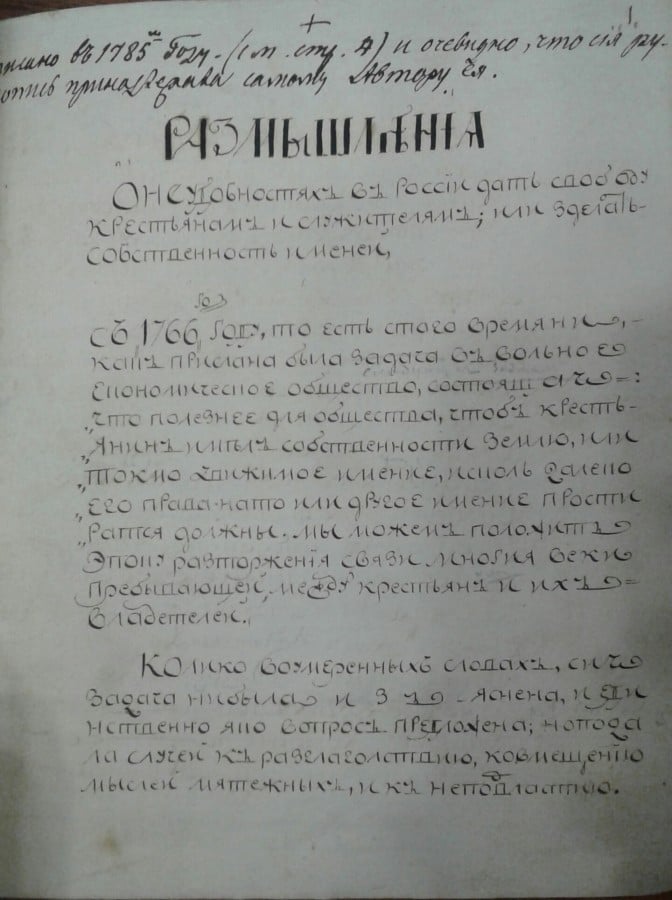 1
писано въ 1785мъ Году. (см. стр. 4) и очевидно, что сія ру-
опись принадлежала самому Автору ея.
РАЗМЫШЛЕНІЯ
О неудобностяхъ въ России дать свободу
крестьянамъ и служителямъ; или зделать
собственность имений,
Съ 1766 Году, то есть стого времяни,-
какъ прислана была задача въ вольное
економическое общество, состоящая =:
„что полезнее для общества, чтобъ кресть-
„янинъ имелъ собственности землю, или
„токмо движимое имение, и сколь далеко
„его права нато или другое имение прости
„ратся должны. мы можемъ положить
Эпоху разторжения связи многия веки
пребывающей, между крестьянъ и ихъ =
владетелей.
Колико вумеренныхъ словахъ, сия
задача нибыла изъяснена, и еди
нственно яко вопросъ предложена; но пода
ла случей къ разглаголствию, ковмещению
мыслей мятежных, и къ неподвластию.